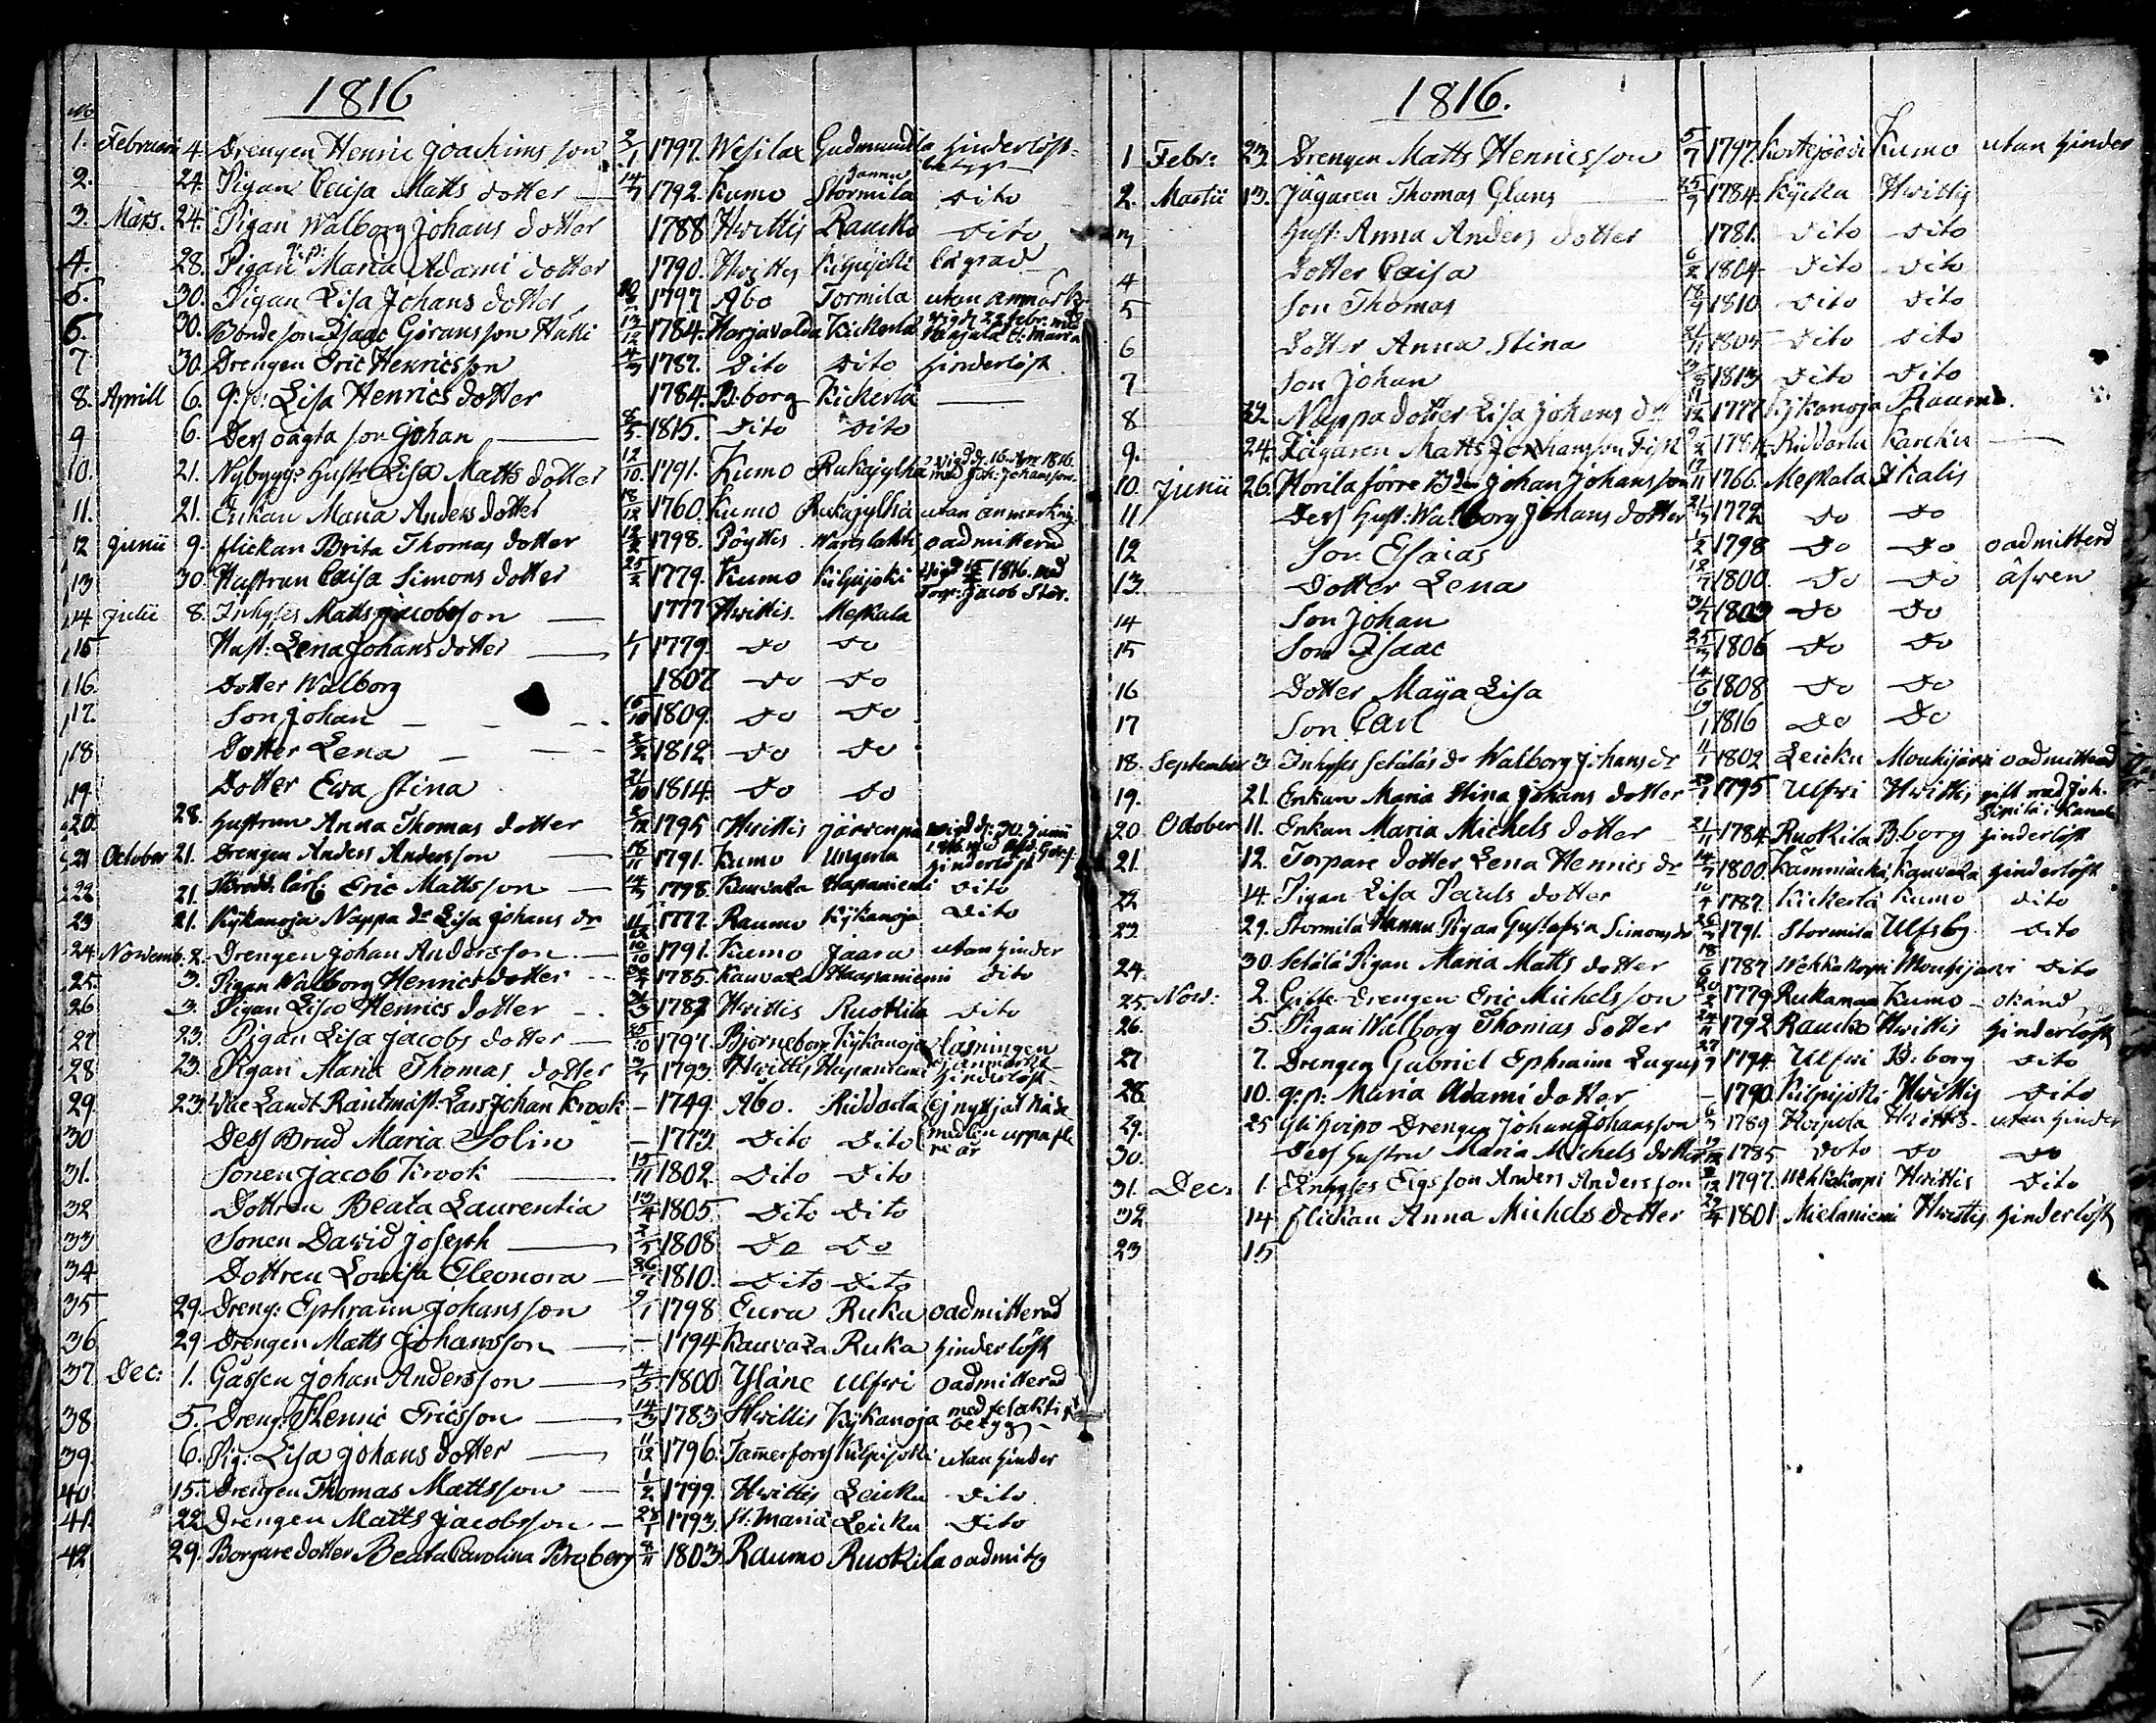 1816
No
1. Februarii 4. Drengen Henric Joachims son 2/1 1797. Wesilax Gudmundila hinderlöst betyg
2. 24. Pigan Caisa Matts dotter 14/7 1792. Kumo Stormila Jannu dito
3. Mars. 24. Pigan Walborg Johans dotter 1788 Hwittis Raucko dito
4. 28. Pigan Maria Adami dotter 1790. Hwittis Kilpijoki lägrad
5. 30. Pigan Lisa Johans dotter 1797 Åbo Tormila utan anmärk
6. 30. Bondeson Isaac Göransson Hatti 13/12 1784. Harjavalda Kickerla wigd 22 febr. med
7 30. Drengen Eric Henricsson 4/3 1787. dito dito hinderlöst.
8. Aprill 6. q:p: Lisa Henrics dotter 1784. B:borg Kickerla
9 6. Dess oägta son Johan 8/5 1815. dito dito
10. 21. Nybygg: hust: Lisa Matts dotter 12/10 1791. Kumo Rukajylhä wigd d. 16 Apr 1816. med Joh: Johansson
11. 21. Enkan Maria Anders dotter 18/12 1760. Kumo Rukajylhä utan anmärkng
12 Junii 9. flickan Brita Thomas dotter 12/2 1798. Pöyttis Wareslahti oadmitterad
13 30. Hustrun Caisa Simons dotter 25/2 1779. Kumo Kilpijoki Wigd 1816. med Torp: Jacob Stor.
14 Julii 8. Inhyses Matts Jacobsson 1777 Hwittis. Meskala
15 Hust: Lena Johans dotter 1/1 1779. do do
16. Dotter Walborg 1807 do do
17. Son Johan 15/10 1809. do do
18 Dotter Lena 2/2 1812 do do
19 Dotter Ewa Stina 21/10 1814. do do
20. 28. Hustrun Anna Thomas dotter 1795 Hwittis Järvenpä wigd d: 30 Junii 1816
21 October 21. Drengen Anders Andersson 18/11 1791. Kumo Ungerla hinderlöst
22 21. Eric Mattsson 14/3 1798. Kauvatza Hapaniemi dito
23 21. Kykanoja Nappa dr Lisa Johans dr 11/12 1777. Raumo Kykanoja dito
24. Novemb: 2. Drengen Johan Andersson 10/10 1791. Kumo Jaara utan hinder
25. 3. Pigan Walborg Henrics dotter 1785. Kauvatza Haapaniemi dito
26 3. Pigan Lisa Henrics dotter 1787 Hwittis Ruokila dito
27 23. Pigan Lisa Jacobs dotter 25/10 1797. Björneborg Kykanoja läsningen
28 23. Pigan Maria Thomas dotter 3/1 1793. Hwittis Hapaniemi hinderlöst
29. 23. Landt Räntmäst. Lars Johan Krook 1749. Åbo. Riddarla Ej nyttjat Nåde
30 Dess Brud Maria Solin 1773. dito dito medlen uppå fle re år
31. Sonen Jacob Krook 15/11 1802. dito dito
32 Dottren Beata Laurentia 13/4 1805. dito dito
33 Sonen David Joseph 2/5 1808 do do
34 Dottren Lovisa Eleonora 26/7 1810. dito dito
35 29. Dreng: Ephraim Johansson 9/1 1798 Eura Ruka oadmitterad
36 29 Drengen Matts Johansson 1794 Kauvatza Ruka hinderlöst
37 Dec: 1. Gåssen Johan Andersson 4/5 1800 Yläne Ulfvi oadmitterad
38 5. Dreng: Henric Ericsson 14/3 1783 Hwittis Kykanoja med felaktigt betyg
39. 6. Pig: Lisa Johans dotter 11/12 1796. Tamerfors Kilpijoki utan hinder
40 15. Drengen Thomas Mattsson 1/2 1799. Hwittis Leicku dito
41. 22 Drengen Matts Jacobsson 28/1 1793. St: Maria Leicku dito
42 29. Borgare dotter Beata Carolina Broberg 8/11 1803 Raumo Ruokila oadmitt
1816.
1 Febr: 23. Drengen Matts Henricsson 5/7 1797. Kortejödi Kumo utan hinder
2. Martii 13. Jägaren Thomas Glans 25/9 1784. Kyetta Hwittis
3 Hust: Anna Anders dotter 1781. dito dito
4 Dotter Caisa 6/2 1804 dito dito
5 Son Thomas 18/9 1810 dito dito
6 Dotter Anna Stina dito dito
7 Son Johan 1813 dito dito
8 Nappa dotter Lisa Johans dr 11/12 1777 Kykanoja Raumo.
9. 24. Jägaren Matts Johansson 1784. Riddarla Karcku
10. Junii 26. Horila förre Johan Johansson 17/11 1766. Meskala Ikalis
11 Dess Hust: Walborg Johans dotter 1772 do do
12 Son Esaias 1/2 1798 do do oadmitterd
13. Dotter Lena 12/7 1800. do do äfven
14 Son Johan 1803 do do
15 Son Isaac 25/3 1806 do do
16 Dotter Maija Lisa 14/6 1808 do do
17 Son Carl 19/1 1816 do do
18. September 3. Inhyses Setäläs dr Walborg Johans dr 11/1 1802 Leicku Mouhijärvi oadmitterad
19. 21. Enkan Maria Stina Johans dotter 23/1 1795 Ulfvi Hwittis gift med Joh.
20 October 11. Enkan Maria Michels dotter 21/11 1784. Ruokila B.borg hinderlöst
21. 12. Torpare dotter Lena Henrics dr 14/7 1800. Kämmäckä Kauvatza hinderlöst
22 14. Pigan Lisa Pauls dotter 10/4 1787. Kickerla Kumo dito
23 29. Stormila Hannu Pigan Gustafva Simons dr 26/3 1791. Stormila Ulfsby dito
24. 30. Setälä Pigan Maria Matts dotter 18/6 1787 Wehkakorpi Mouhijärvi dito
25. Nov: 2. Gifte drengen Eric Michelsson 20/2 1779 Rukamaa Kumo okänd
26. 5. Pigan Walborg Thomas dotter 24/11 1792 Raucko Hwittis hinderlöst
27 7. Drengen Gabriel Ephraim Lagus 27/7 1794. Ulfvi B:borg dito
28 10. q:p: Maria Adami dotter 1790. Kilpijoki Hwittis dito
29. 25 Drengen Johan Johansson 6/3 1789 Horpola Hwittis. utan hinder
30. Dess hustru Maria Michels dotter 1785 doto do do
31. Dec: 1. Inhyses Anders Andersson 8/12 1797. Wehkakorpi Hwittis dito
32 14 flickan Anna Michels dotter 29/4 1801 Mielaniemi Hwittis hinderlöst
23 15